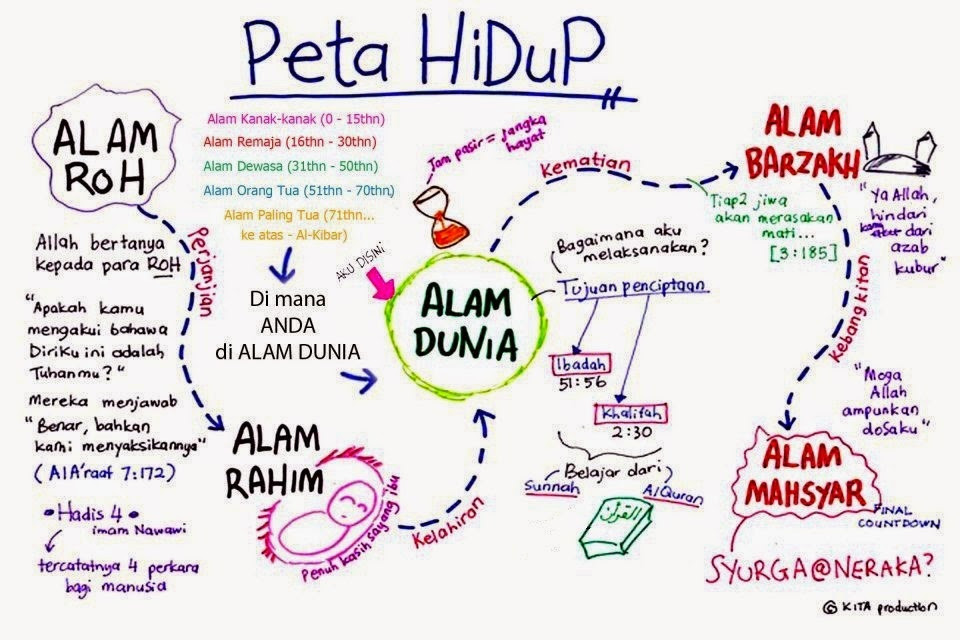 Peta HiDuP
ALAM
ROH
Alam Kanak-kanak (0 - 15thn)
Alam Remaja (16thn - 30thn)
Alam Dewasa (31thn - 50thn)
Alam Orang Tua (51thn - 70thn)
Alam Paling Tua (71thn...
ke atas - Al-Kibar)
Perjanjian
Allah bertanya
kepada para ROH
"Apakah kamu
mengakui bahawa
Diriku ini adalah
Tuhanmu?"
Mereka menjawab
"Benar, bahkan
kami menyaksikannya"
(Al A'raaf 7:172)
• Hadis 4 •
imam Nawawi
tercatatnya 4 perkara
bagi manusia
Di mana
ANDA
di ALAM DUNIA
AKU DISINI
ALAM
RAHIM
Penuh kasih sayang ibu
Kelahiran
Jam pasir = jangka
hayat
ALAM
DUNIA
Bagaimana aku
melaksanakan?
Tujuan penciptaan
Ibadah
51:56
Khalifah
2:30
Belajar dari
Sunnah
AlQuran
القرآن
Kematian
Tiap2 jiwa
akan merasakan
mati...
[3:185]
ALAM
BARZAKH
"Ya Allah,
hindari
dari
azab
kubur"
Kebangkitan
"Moga
Allah
ampunkan
dosaku"
ALAM
MAHSYAR
FINAL
COUNTDOWN
SYURGA@NERAKA?
© KITA production